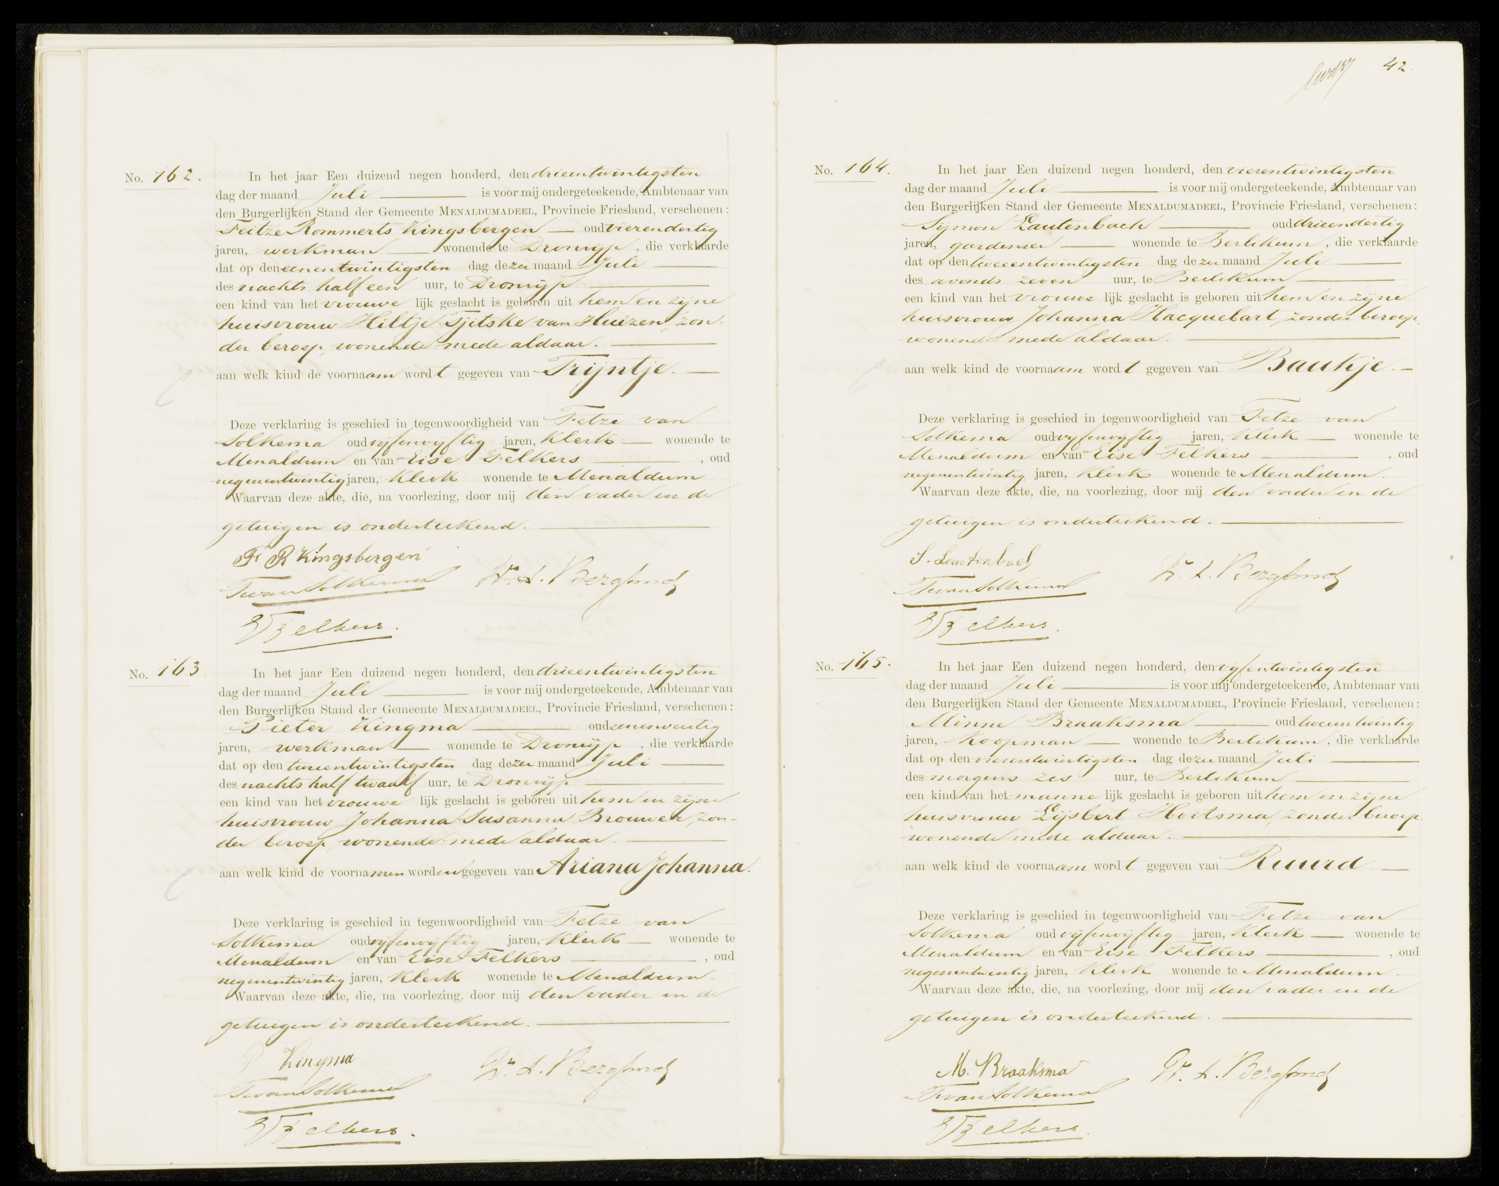 42
No. 162.
In het jaar Een duizend negen honderd, den drieentwintigsten
dag der maand Juli is voor mij ondergeteekende, Ambtenaar van
den Burgerlijken Stand der Gemeente MENALDUMADEEL, Provincie Friesland, verschenen:
Feitze Rommerts Kingsbergen oud vierendertig
jaren, werkman wonende te Dronrijp, die verklaarde
dat op den eenentwintigsten dag dezer maand Juli
des nachts half een uur, te Dronrijp
een kind van het vrouwelijk geslacht is geboren uit hem en zijne
huisvrouw Hiltje Tjitske van Huizen, zon-
der beroep, wonende mede aldaar.
aan welk kind de voornaam wordt gegeven van Trijntje.
Deze verklaring is geschied in tegenwoordigheid van Fetze van
Solkema oud vijfenvijftig jaren, klerk wonende te
Menaldum en van Eise Felkers, oud
negenentwintig jaren, klerk wonende te Menaldum
Waarvan deze akte, die, na voorlezing, door mij den vader en de
getuigen is onderteekend.
F R Kingsbergen
F. van Solkema
E Felkers.
No. 163
In het jaar Een duizend negen honderd, den drieentwintigsten
dag der maand Juli is voor mij ondergeteekende, Ambtenaar van
den Burgerlijken Stand der Gemeente MENALDUMADEEL, Provincie Friesland, verschenen:
Pieter Kingma oud eenenveertig
jaren, werkman wonende te Dronrijp, die verklaarde
dat op den tweeentwintigsten dag dezer maand Juli
des nachts half twaalf uur, te Dronrijp
een kind van het vrouwelijk geslacht is geboren uit hem en zijne
huisvrouw Johanna Susanna Brouwer, zon-
der beroep, wonende mede aldaar.
aan welk kind de voornamen worden gegeven van Ariana Johanna.
Deze verklaring is geschied in tegenwoordigheid van Fetze van
Solkema oud vijfenvijftig jaren, klerk wonende te
Menaldum en van Eise Felkers, oud
negenentwintig jaren, klerk wonende te Menaldum.
Waarvan deze akte, die, na voorlezing, door mij den vader en de
getuigen is onderteekend.
P Kingma
F. van Solkema
E Felkers.
No. 164.
In het jaar Een duizend negen honderd, den vierentwintigsten
dag der maand Juli is voor mij ondergeteekende, Ambtenaar van
den Burgerlijken Stand der Gemeente MENALDUMADEEL, Provincie Friesland, verschenen:
Symon Lautenbach oud drieendertig
jaren, gardenier wonende te Berlikum, die verklaarde
dat op den tweeentwintigsten dag dezer maand Juli
des avonds zeven uur, te Berlikum
een kind van het vrouwelijk geslacht is geboren uit hem en zijne
huisvrouw Johanna Hacquebart, zonder beroep,
wonende mede aldaar.
aan welk kind de voornaam wordt gegeven van Baukje.
Deze verklaring is geschied in tegenwoordigheid van Fetze van
Solkema oud vijfenvijftig jaren, klerk wonende te
Menaldum en van Eise Felkers, oud
negenentwintig jaren, klerk wonende te Menaldum.
Waarvan deze akte, die, na voorlezing, door mij den vader en de
getuigen is onderteekend.
S. Lautenbach
F. van Solkema
E Felkers.
No. 165.
In het jaar Een duizend negen honderd, den vijfentwintigsten
dag der maand Juli is voor mij ondergeteekende, Ambtenaar van
den Burgerlijken Stand der Gemeente MENALDUMADEEL, Provincie Friesland, verschenen:
Minne Braaksma oud tweeentwintig
jaren, koopman wonende te Berlikum, die verklaarde
dat op den vierentwintigsten dag dezer maand Juli
des morgens zes uur, te Berlikum
een kind van het mannelijk geslacht is geboren uit hem en zijne
huisvrouw Lijsbert Hoitsma, zonder beroep
wonende mede aldaar.
aan welk kind de voornaam wordt gegeven van Ruurd
Deze verklaring is geschied in tegenwoordigheid van Fetze van
Solkema oud vijfenvijftig jaren, klerk wonende te
Menaldum en van Eise Felkers, oud
negenentwintig jaren, klerk wonende te Menaldum.
Waarvan deze akte, die, na voorlezing, door mij den vader en de
getuigen is onderteekend.
M. Braaksma
F. van Solkema
E Felkers.